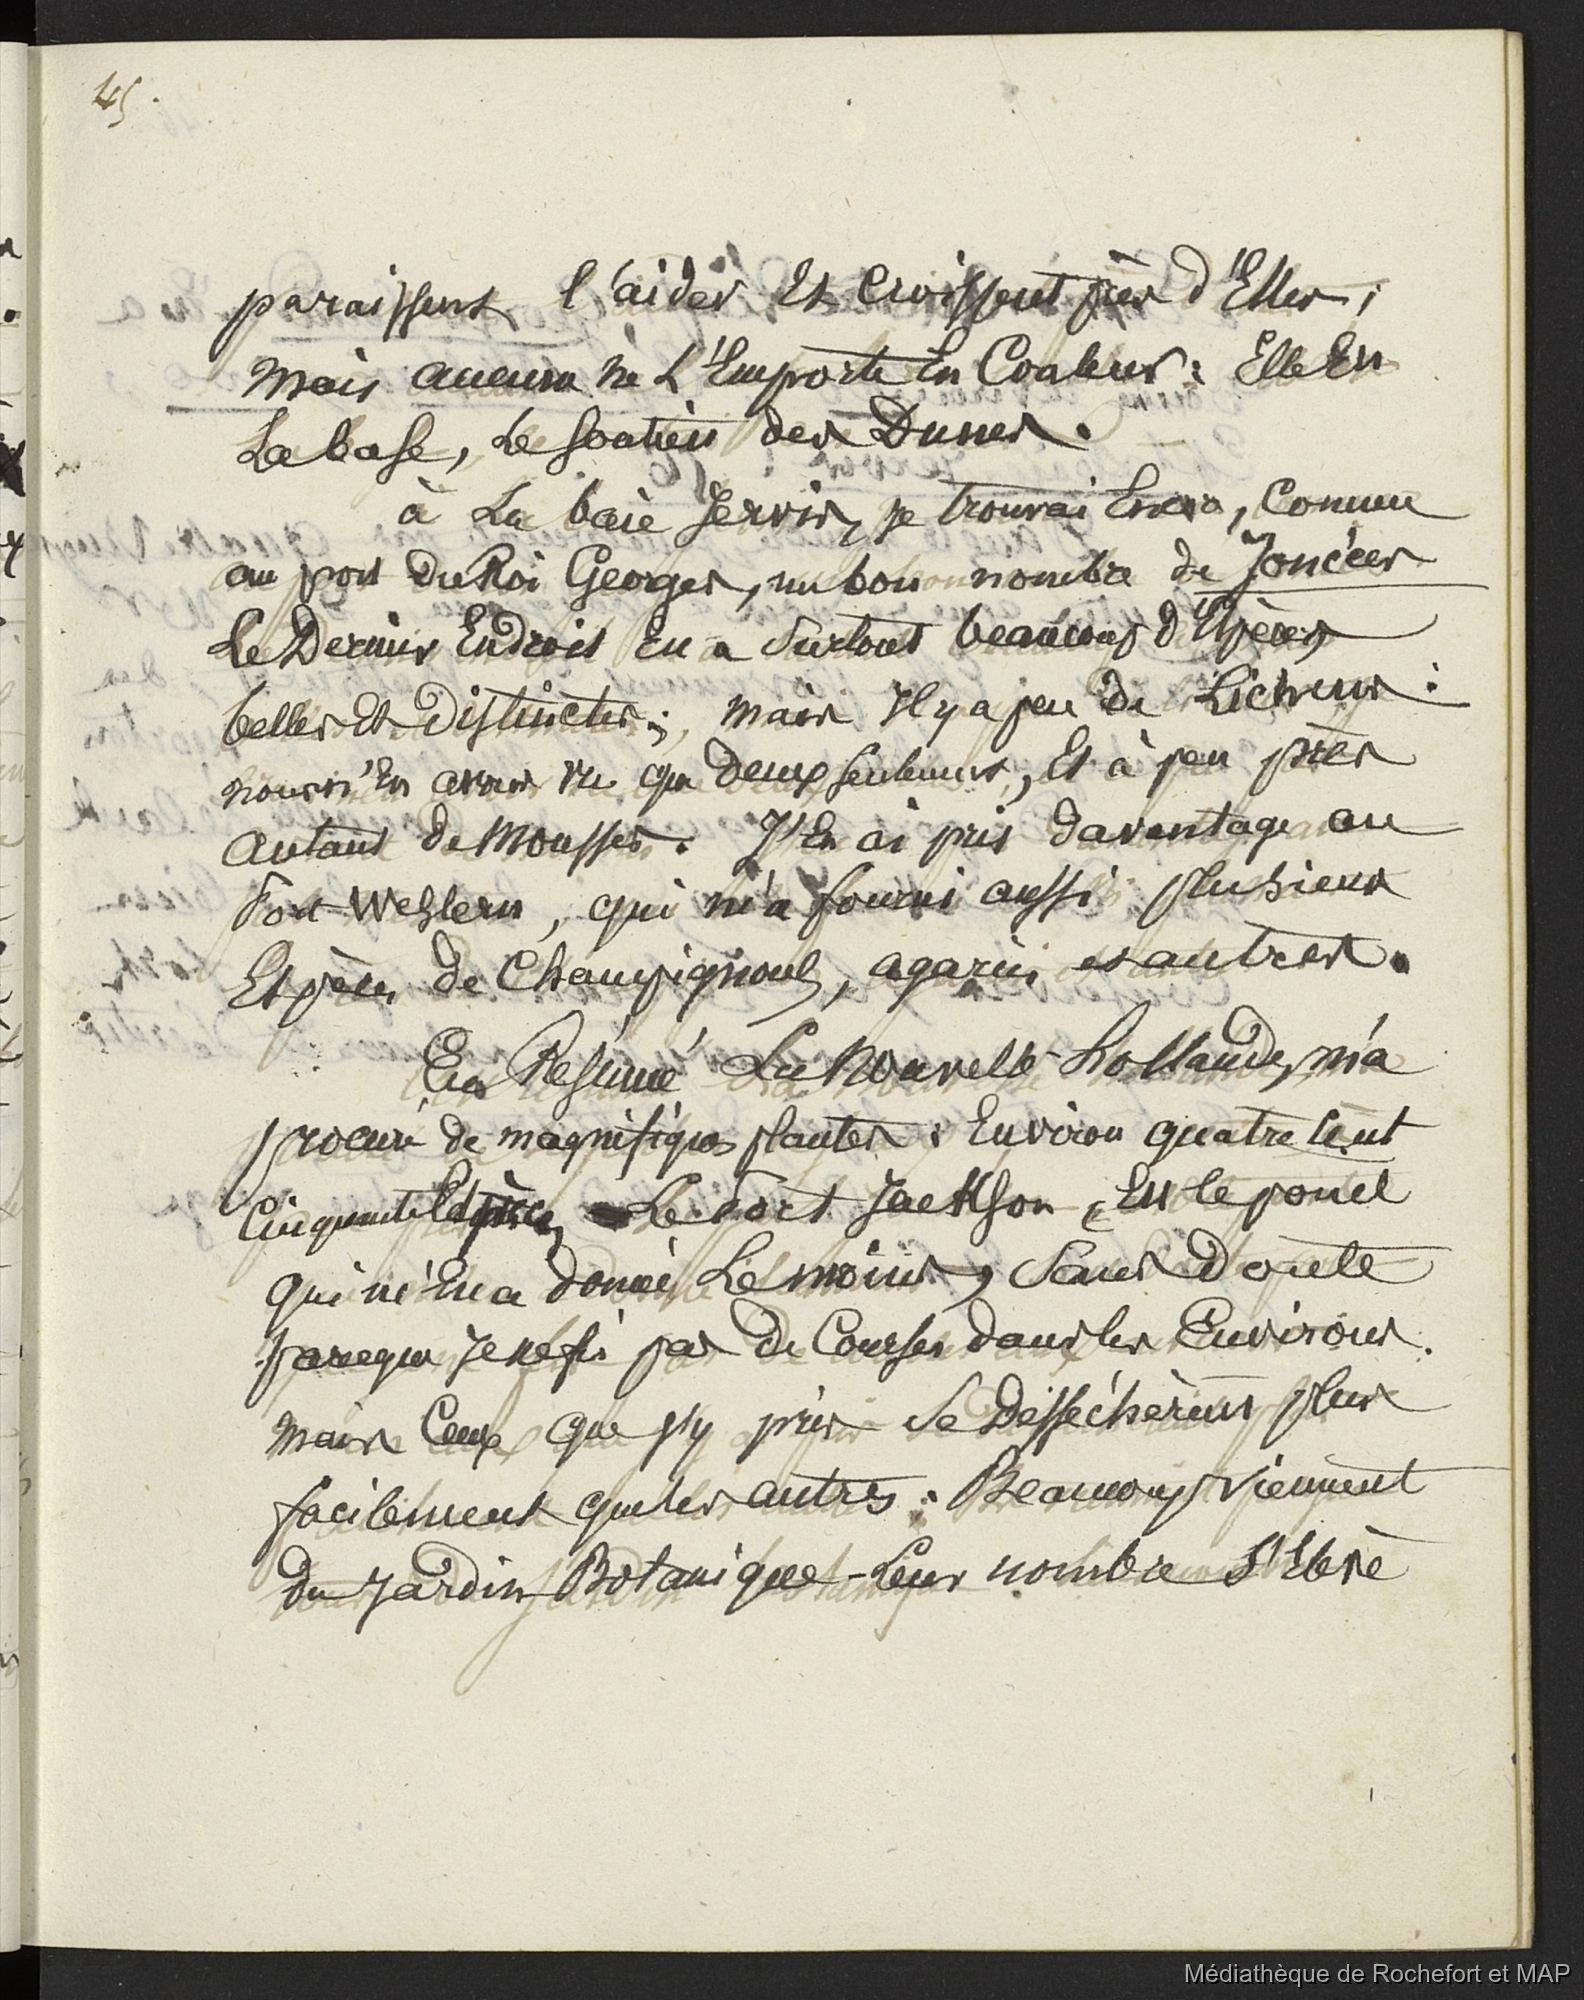 45.
paraissent l'aider Et Croissent près d'Elles;
mais aucune ne L'Emporte En Couleur: Elle En
La base, Le soutien des Dunes.
à La baie Jervis, je trouvai Encore, Comme
au port Du Roi Georges, un bon nombre de Joncées
Le Dernier Endroit En a Surtout beaucoup d'Espèces,
belles Et Distinctes; mais Il y a peu de Lichens:
nous n'En avons vu que Deux seulement, Et à peu près
autant de Mousses. J'En ai pris davantage au
Port Western, qui m'a fourni aussi plusieurs
Espèces de Champignons, agarics et autres.
En Résumé La Nouvelle-Hollande, m'a
procuré de magnifiques plantes: Environ quatre Cent
Cinquante Espèces, Le Port Jackson, En le point
qui m'En a donné Le moins, Sans Doute
parceque Je ne fis pas de Courses dans les Environs.
mais Ceux que j'y pris Se Desséchèrent plus
facilement que les autres: Beaucoup Viennent
Du Jardin Botanique - Leur nombre S'Elève
Médiathèque de Rochefort et MAP